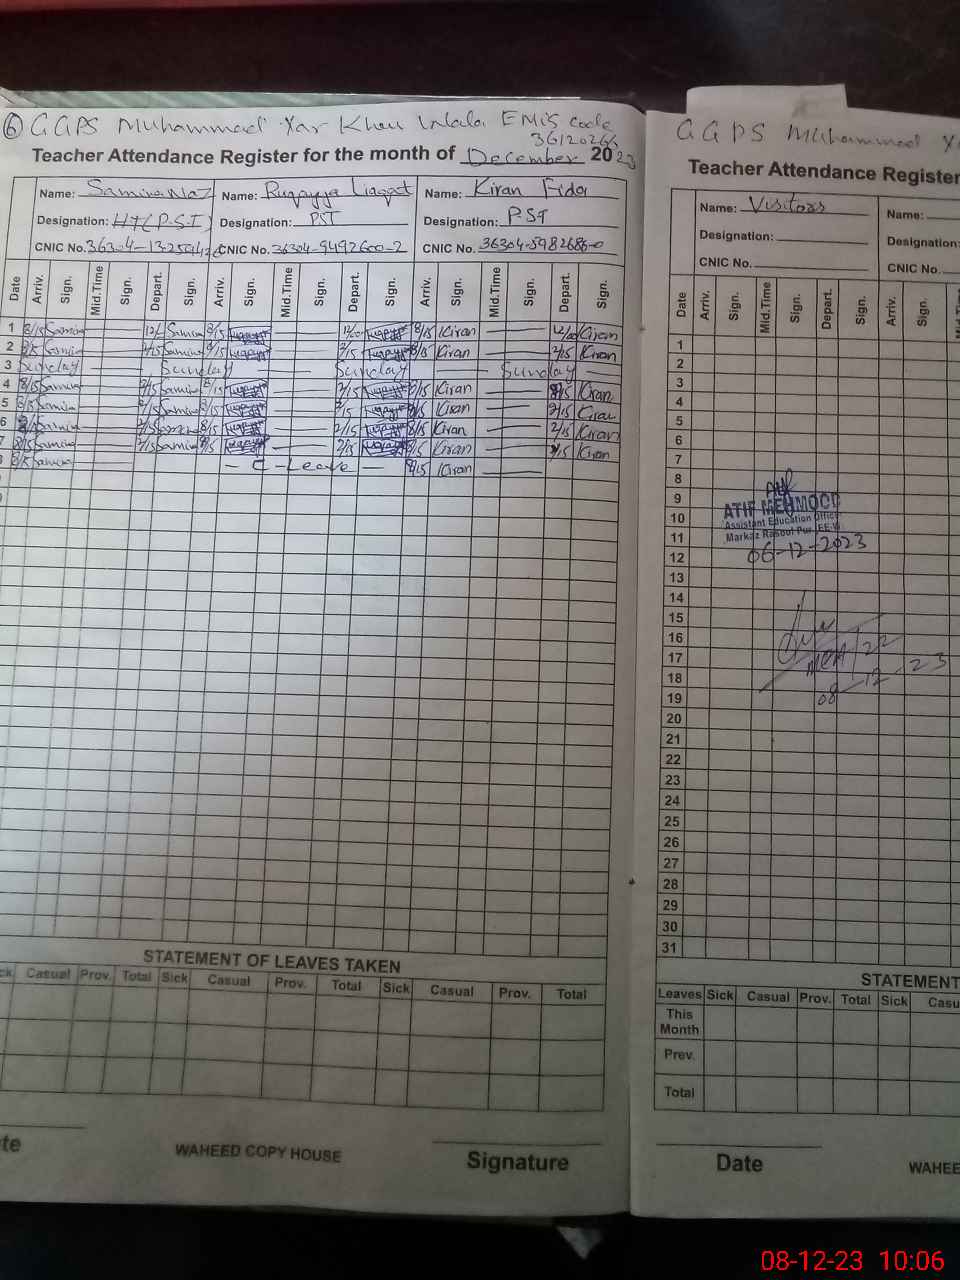 6 GGPS Muhammad Yar Khan Wala EMIS code
36120266
Teacher Attendance Register for the month of December 2023
Name: Samina Naz Name: Ruqayya Liaqat Name: Kiran Fida
Designation: HT(P.S.T) Designation: PST Designation: PST
CNIC No. CNIC No. 36304-9492600-2 CNIC No. 36304-5982686-0
Date Arriv. Sign. Mid.Time Sign. Depart. Sign. Arriv. Sign. Mid.Time Sign. Depart. Sign. Arriv. Sign. Mid.Time Sign. Depart. Sign.
1 8/15 Samina Samina 8/15 12/00 8/15 Kiran 12/00 Kiran
2 Samina 2/15 Samina 8/15 2/15 8/15 Kiran 2/15 Kiran
3 Sunday Sunday Sunday Sunday
4 8/15 Samina 2/15 Samina 8/15 2/15 8/15 Kiran 2/15 Kiran
5 8/15 Samina 2/15 Samina 8/15 2/15 8/15 Kiran 2/15 Kiran
6 Samina 2/15 Samina 8/15 2/15 8/15 Kiran 2/15 Kiran
7 8/15 Samina 2/15 Samina 8/15 2/15 8/15 Kiran 2/15 Kiran
8/15 Samina - C-Leave - 8/15 Kiran
STATEMENT OF LEAVES TAKEN
Casual Prov. Total Sick Casual Prov. Total Sick Casual Prov. Total
WAHEED COPY HOUSE
Signature
GGPS Muhammad
Teacher Attendance Register
Name: Visitors Name:
Designation: Designation:
CNIC No. CNIC No.
Date Arriv. Sign. Mid.Time Sign. Depart. Sign. Arriv. Sign.
1
2
3
4
5
6
7
8
9
10
11
12
13
14
15
16
17
18
19
20
21
22
23
24
25
26
27
28
29
30
31
ATIF MEHMOOD
Assistant Education Officer
Markaz Rasool Pur
06-12-2023
MEA/22
08-12-23
STATEMENT
Leaves Sick Casual Prov. Total Sick
This
Month
Prev.
Total
Date
08-12-23 10:06